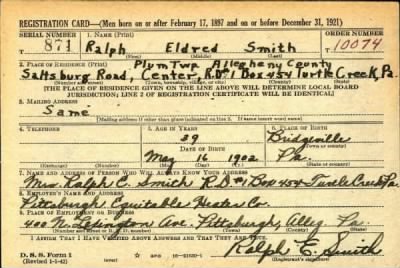 REGISTRATION CARD—(Men born on or after February 17, 1897 and on or before December 31, 1921)
SERIAL NUMBER 1. NAME (Print) ORDER NUMBER
871 Ralph Eldred Smith 10074
(First) (Middle) (Last)
2. PLACE OF RESIDENCE (Print) Plum Twp Allegheny County
Saltsburg Road, Center, R.D.#1 Box 454 Turtle Creek, Pa.
[THE PLACE OF RESIDENCE GIVEN ON THE LINE ABOVE WILL DETERMINE LOCAL BOARD
JURISDICTION; LINE 2 OF REGISTRATION CERTIFICATE WILL BE IDENTICAL]
3. MAILING ADDRESS
Same
[Mailing address if other than place indicated on line 2. If same insert word same]
4. TELEPHONE 5. AGE IN YEARS 6. PLACE OF BIRTH
39 Bridgeville
DATE OF BIRTH
May 16 1902 Pa.
(Mo.) (Day) (Yr.)
7. NAME AND ADDRESS OF PERSON WHO WILL ALWAYS KNOW YOUR ADDRESS
Mrs Ralph E. Smith R.D.#1 Box 454 Turtle Creek Pa
8. EMPLOYER'S NAME AND ADDRESS
Pittsburgh Equitable Meter Co.
9. PLACE OF EMPLOYMENT OR BUSINESS
400 N. Lexington Ave. Pittsburgh, Alleg. Pa.
I AFFIRM THAT I HAVE VERIFIED ABOVE ANSWERS AND THAT THEY ARE TRUE.
D. S. S. Form 1
(Revised 1-1-42) 16-21630-1 Ralph E. Smith